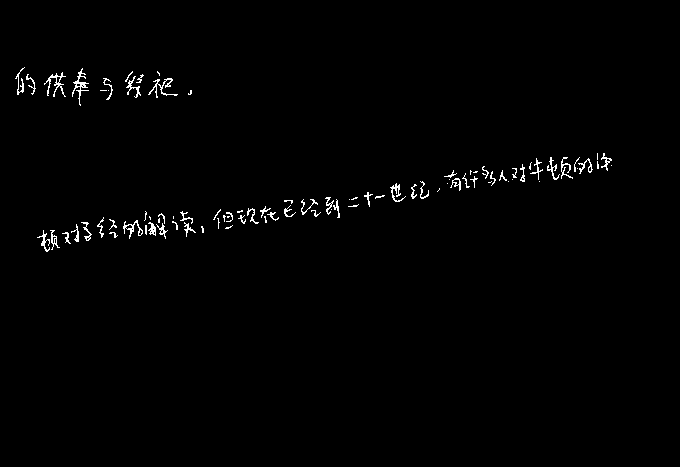 的供奉与祭祀.
顿对圣经的解读,但现在已经到二十一世纪,有许多人对牛顿的